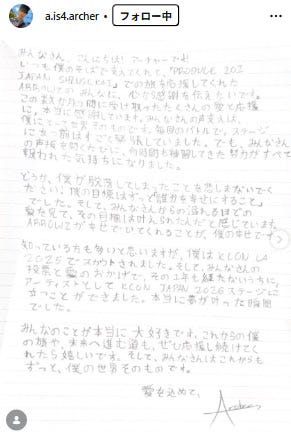 a.is4.archer・フォロー中
みんなさん、こんにちは！アーチャーです！
いつも僕のそばで支えてくれて、「PRODUCE 101
JAPAN SHINSEKAI」での旅を応援してくれた
みんなに、心から感謝を伝えたいです。
この数か月の間に受け取ったたくさんの愛と応援
に、本当に感謝しています。みんなさんの声援は、
僕にとって世界そのものです。毎回のバトルで、ステージ
に立つ前はすごく緊張していました。でも、みんなさん
の声援を聞くたびに、何時間も練習してきた努力がすべて
報われた気持ちになりました。
どうか、僕が脱落してしまったことを悲しまないでく
ださい。僕の目標はずっと「誰かを幸せにすること」
でした。そして、みんなさんからの溢れるほどの
愛を見て、その目標は叶えられたんだと感じています。
が幸せでいてくれることが、僕の幸せです
知っている方も多いと思いますが、僕はKCON LA
2025でスカウトされました。そして、みんなさんの
投票と愛のおかげで、その1年も経たないうちに、
アーティストとしてKCON JAPAN 2026ステージに
立つことができました。本当に夢が叶った瞬間
でした。
みんなのことが本当に大好きです。これからの僕
の旅や、未来へ進む道も、ぜひ応援し続けてく
れたら嬉しいです。そして、みんなさんはこれからも
ずっと、僕の世界そのものです。
愛を込めて、
Archer